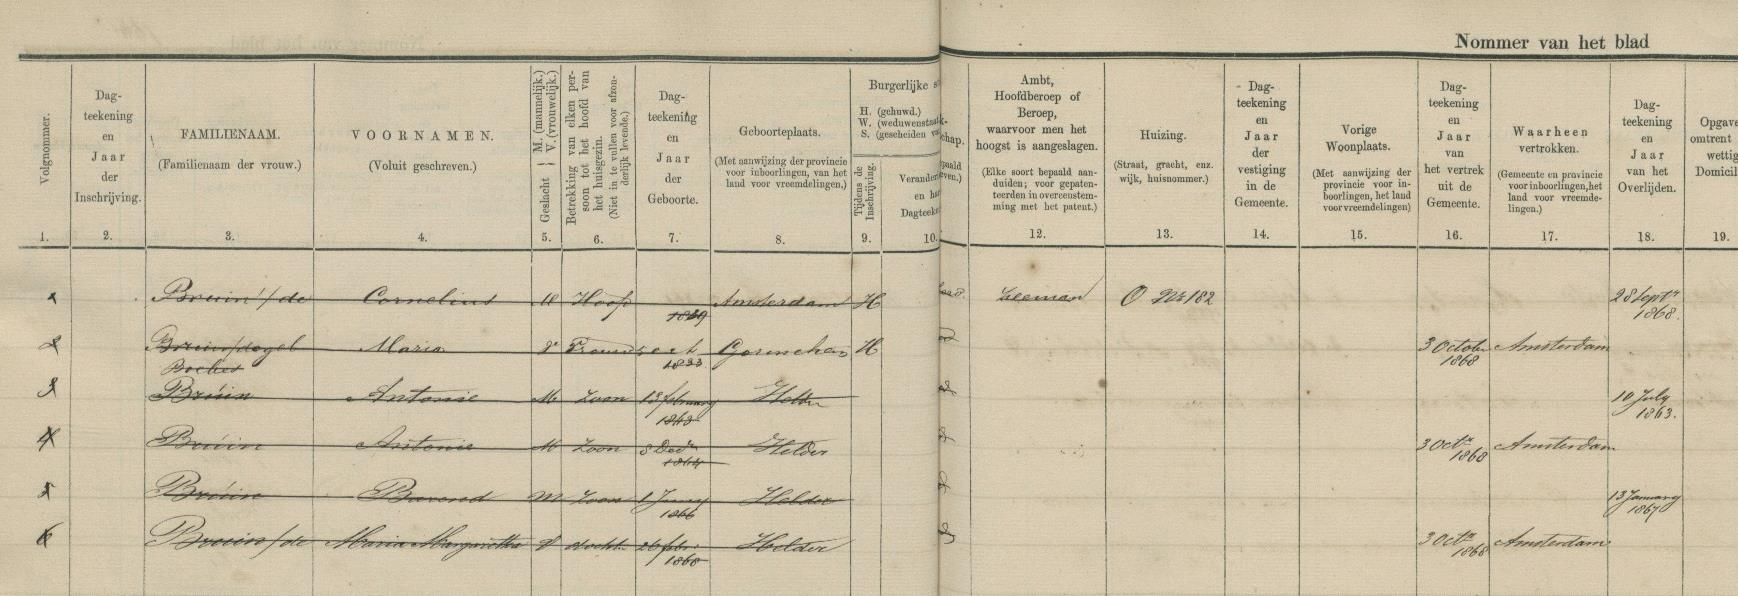 Nommer van het blad
Volgnommer.
1.
Dag-
teekening
en
Jaar
der
Inschrijving.
2.
FAMILIENAAM.
(Familienaam der vrouw.)
3.
VOORNAMEN.
(Voluit geschreven.)
4.
Geslacht { M. (mannelijk.)
V. (vrouwelijk.)
5.
Betrekking van elken per-
soon tot het hoofd van
het huisgezin.
(Niet in te vullen voor afzon-
derlijk levende.)
6.
Dag-
teekening
en
Jaar
der
Geboorte.
7.
Geboorteplaats.
(Met aanwijzing der provincie
voor inboorlingen, van het
land voor vreemdelingen,)
8.
Burgerlijke
H. (gehuwd.)
W. (weduwenstaat
S. (gescheiden
Tijdens de
Inschrijving.
9.
Verander
en
Dagteeke
10.
Ambt,
Hoofdberoep of
Beroep,
waarvoor men het
hoogst is aangeslagen.
(Elke soort bepaald aan-
duiden; voor gepaten-
teerden in overeenstem-
ming met het patent.)
12.
Huizing.
(Straat, gracht, enz.
wijk, huisnommer.)
13.
Dag-
teekening
en
Jaar
der
vestiging
in de
Gemeente.
14.
Vorige
Woonplaats.
(Met aanwijzing der
provincie voor in-
boorlingen, het land
voor vreemdelingen)
15.
Dag-
teekening
en
Jaar
van
het vertrek
uit de
Gemeente.
16.
Waarheen
vertrokken.
(Gemeente en provincie
voor inboorlingen, het
land voor vreemde-
lingen.)
17.
Dag-
teekening
en
Jaar
van het
Overlijden.
18.
Opgave
omtrent
wettig
Domicil
19.
1 Bruin / de Cornelius M Hoofd 1839 Amsterdam H Zeeman O No 182 28 Septr 1868.
2 Bruin / Maria V Vrouw 5 Oct 1833 Gorinchem H 3 October 1868 Amsterdam
3 Bruin Antonie M Zoon 13 february 1863 Helder 10 July 1863.
4 Bruin Antonie M Zoon 8 Decr 1864 Helder 3 Octr 1868 Amsterdam
5 Bruin Barend M Zoon 1866 Helder 13 January 1867
6 Bruin / de Maria Margaretha V docht. 26 febr 1868 Helder 3 Octr 1868 Amsterdam